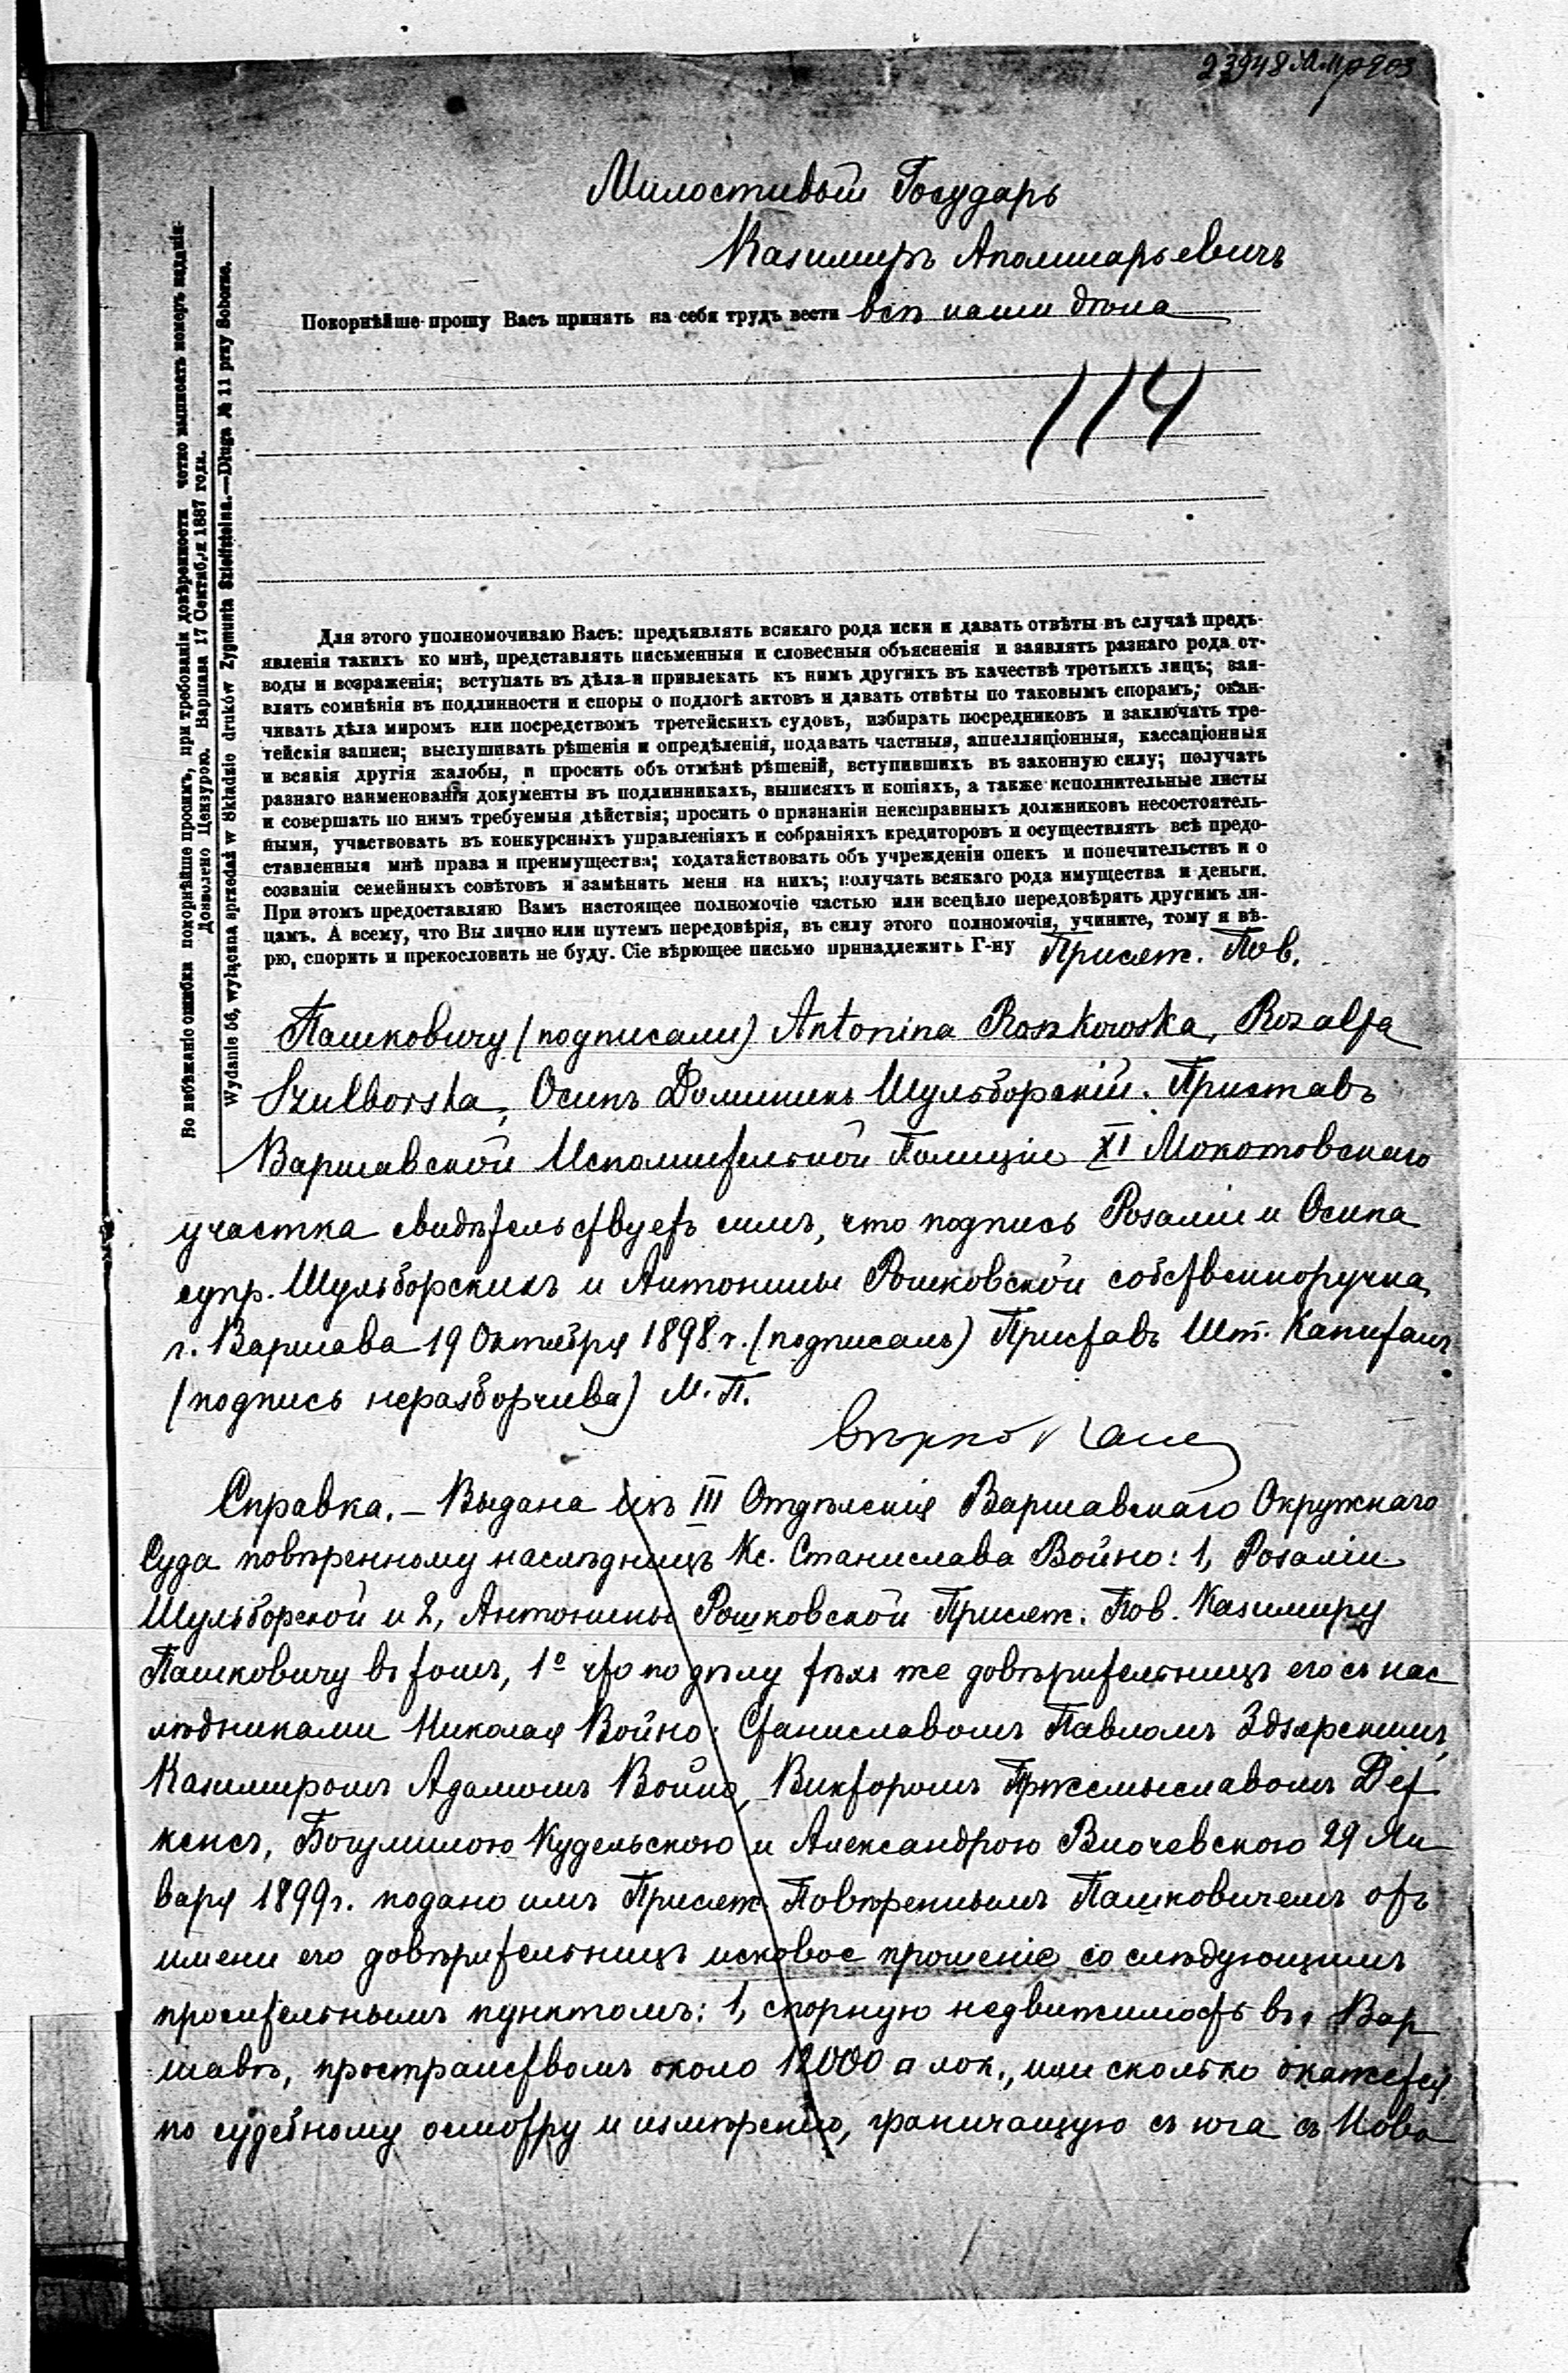 23948
Милостивый Государь
Казимиръ Аполинарьевичъ
Покорнѣйше прошу Васъ принять на себя трудъ вести всѣ наши дѣла
114
Для этого уполномочиваю Васъ: предъявлять всякаго рода иски и давать отвѣты въ случаѣ предъ-
явленія такихъ ко мнѣ, представлять письменныя и словесныя объясненія и заявлять разнаго рода от-
воды и возраженія; вступать въ дѣла и привлекать къ нимъ другихъ въ качествѣ третьихъ лицъ; зая-
влять сомнѣнія въ подлинности и споры о подлогѣ актовъ и давать отвѣты по таковымъ спорамъ; окан-
чивать дѣла миромъ или посредствомъ третейскихъ судовъ, избирать посредниковъ и заключать тре-
тейскія записи; выслушивать рѣшенія и опредѣленія, подавать частныя, аппелляціонныя, кассаціонныя
и всякія другія жалобы, и просить объ отмѣнѣ рѣшеній, вступившихъ въ законную силу; получать
разнаго наименованія документы въ подлинникахъ, выписяхъ и копіяхъ, а также исполнительные листы
и совершать по нимъ требуемыя дѣйствія; просить о признаніи неисправныхъ должниковъ несостоятель-
ными, участвовать въ конкурсныхъ управленіяхъ и собраніяхъ кредиторовъ и осуществлять всѣ предо-
ставленныя мнѣ права и преимущества; ходатайствовать объ учрежденіи опекъ и попечительствъ и о
созваніи семейныхъ совѣтовъ и замѣнять меня на нихъ; получать всякаго рода имущества и деньги.
При этомъ предоставляю Вамъ настоящее полномочіе частью или всецѣло передовѣрять другимъ ли-
цамъ. А всему, что Вы лично или путемъ передовѣрія, въ силу этого полномочія, учините, тому я вѣ-
рю, спорить и прекословить не буду. Сіе вѣрющее письмо принадлежить Г-ну Присяж. Пов.
Пашковичу (подписали) Antonina Roszkowska, Rozalja
Szulborska, Осипъ Доминикъ Шульборскій. Приставъ
Варшавской Исполнительной Полиціи XI Мокотовскаго
участка свидѣтельствуетъ симъ, что подпись Розаліи и Осипа
супр. Шульборскихъ и Антонины Рошковской собственноручна
г. Варшава 19 Октября 1898 г. (подписалъ) Приставъ Шт. Капитанъ
(подпись неразборчива) М. П.
вѣрно
Справка. – Выдана изъ III Отдѣленія Варшавскаго Окружнаго
Суда повѣренному наслѣдницъ Кс. Станислава Войно: 1, Розаліи
Шульборской и 2, Антонины Рошковской Присяж. Пов. Казимиру
Пашковичу въ томъ, 1º что по дѣлу тѣхъ же довѣрительницъ его съ нас
лѣдниками Николая Войно: Станиславомъ Павломъ Здзярскимъ,
Казимиромъ Адамомъ Войно, Викторомъ Пржемыславомъ Дет
кенсъ, Богумилою Кудельскою и Александрою Влочевскою 29 Ян
варя 1899 г. подано имъ Присяж. Повѣреннымъ Пашковичемъ отъ
имени его довѣрительницъ исковое прошеніе со слѣдующимъ
просительнымъ пунктомъ: 1, спорную недвижимость въ г. Вар
шавѣ, пространствомъ около 12000 □ лок., или сколько окажется
по судебному осмотру и измѣренію, граничащую съ юга съ Ново
Во избѣжаніе ошибки покорнѣйше просимъ, при требованіи довѣренности четко выписать номеръ изданія.
Дозволено Цензурою. Варшава 17 Сентября 1887 года.
Wydanie 56, wyłączna sprzedaż w Składzie druków Zygmunta Szleifsteina.—Długa № 11 przy Soborze.